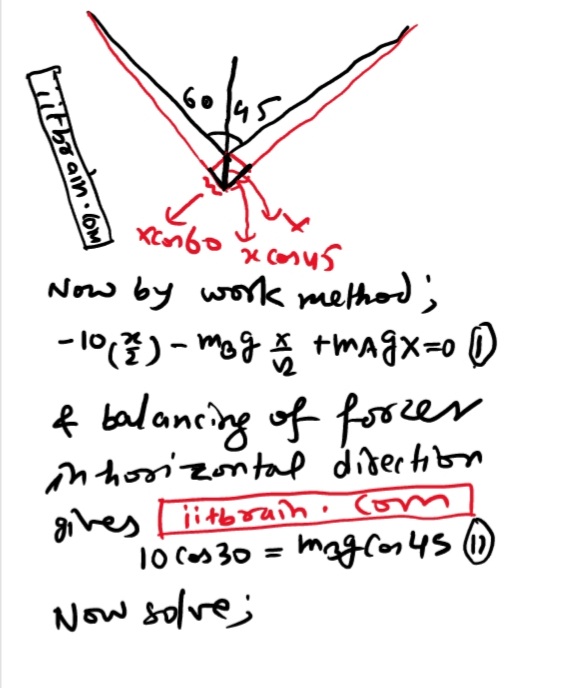 60 45
iitbrain.com
x
xcos60
x cos45
Now by work method;
-10(x/2) - mBg x/√2 + mAgx=0 (I)
& balancing of forces
in horizontal direction
gives iitbrain.com
10 cos30 = mBg cos45 (II)
Now solve;